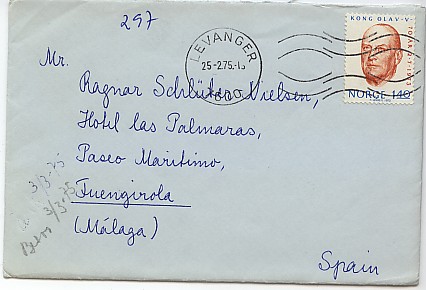 297
KONG OLAV·V
LEVANGER
25-2.75.-15
7600
NORGE 140
Mr.
Ragnar Schlüter Nielsen,
Hotel las Palmaras,
Paseo Maritimo,
Fuengirola
(Málaga)
Spain
3/3-75
Besv 3/3-75